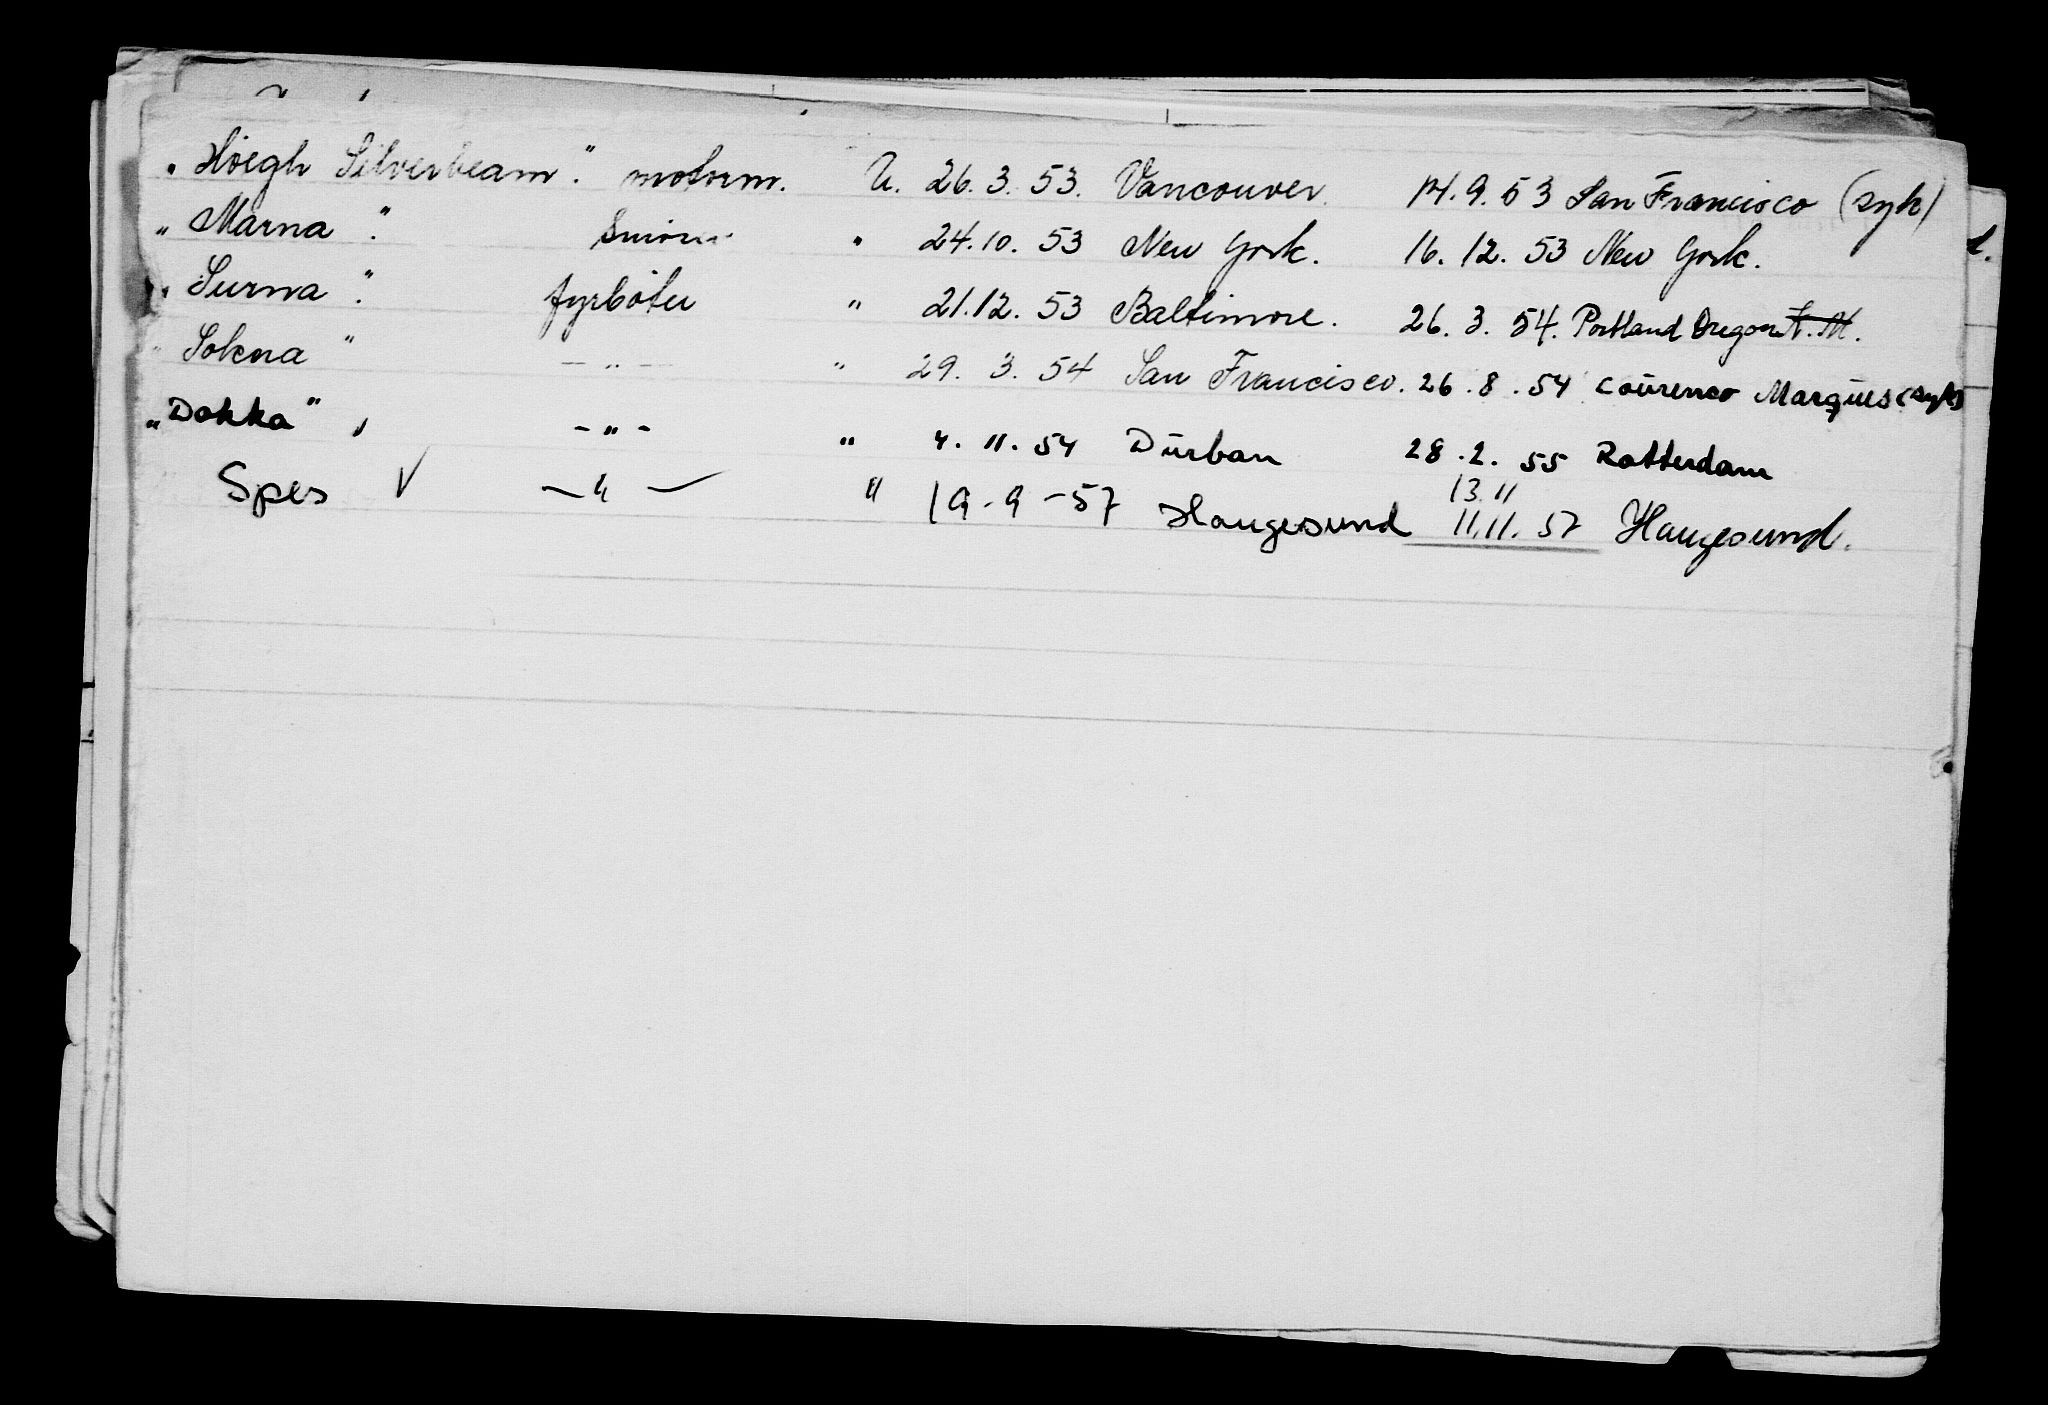 "Höegh Silverbeam". motorm. U. 26. 3. 53. Vancouver. 14. 9. 53 San Francisco (syk)
"Marna". Smörer " 24. 10. 53 New York. 16. 12. 53 New York.
"Surna". fyrböter " 21. 12. 53 Baltimore. 26. 3. 54. Portland Oregon
"Sokna" - " - " 29. 3. 54 San Francisco. 26. 8. 54 Lourenco Marques (syk)
"Dokka" - " - " 4. 11. 54 Durban 28. 2. 55 Rotterdam
13. 11
Spes - " - " 19-9-57 Haugesund 11. 11. 57 Haugesund.